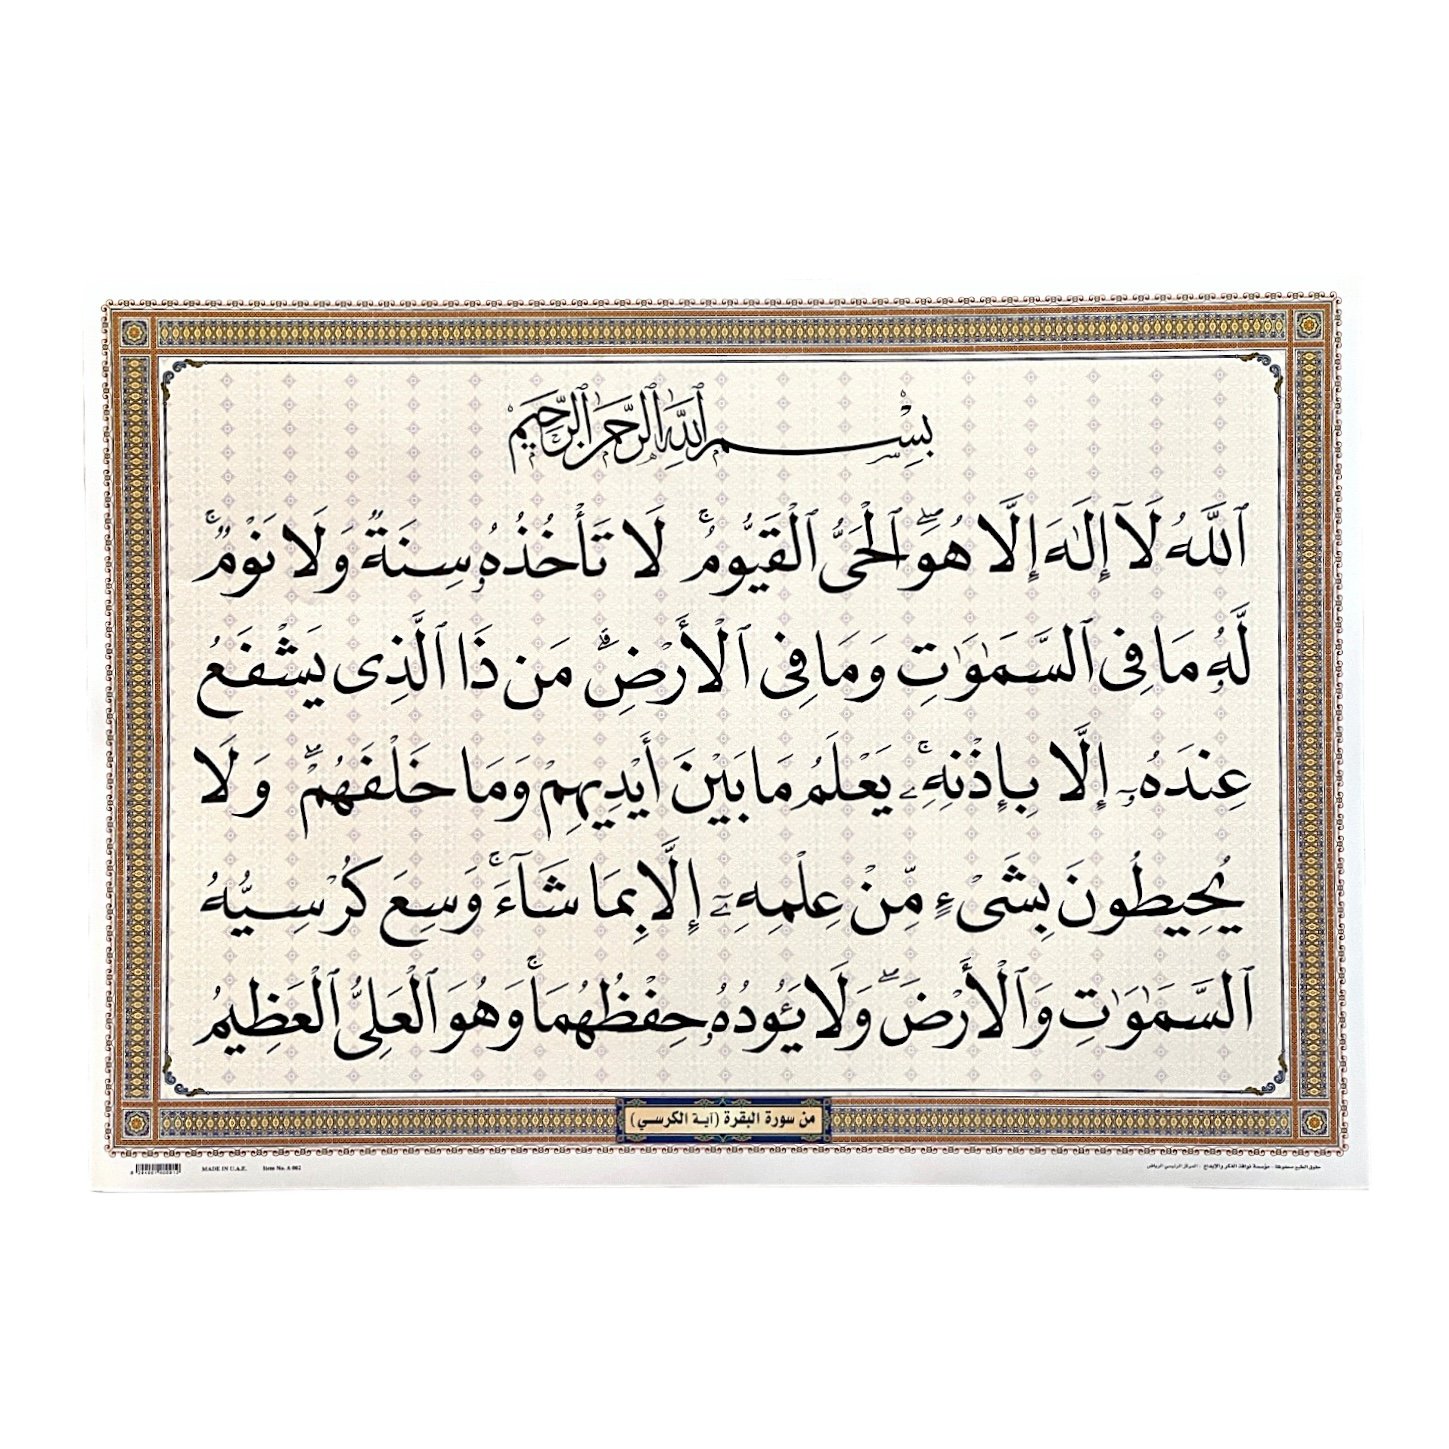 بِسْمِ ٱللَّهِ ٱلرَّحْمَٰنِ ٱلرَّحِيمِ
ٱللَّهُ لَآ إِلَٰهَ إِلَّا هُوَ ٱلْحَىُّ ٱلْقَيُّومُ ۚ لَا تَأْخُذُهُۥ سِنَةٌ وَلَا نَوْمٌ ۚ
لَّهُۥ مَا فِى ٱلسَّمَٰوَٰتِ وَمَا فِى ٱلْأَرْضِ ۗ مَن ذَا ٱلَّذِى يَشْفَعُ
عِندَهُۥٓ إِلَّا بِإِذْنِهِۦ ۚ يَعْلَمُ مَا بَيْنَ أَيْدِيهِمْ وَمَا خَلْفَهُمْ ۖ وَلَا
يُحِيطُونَ بِشَىْءٍ مِّنْ عِلْمِهِۦٓ إِلَّا بِمَا شَآءَ ۚ وَسِعَ كُرْسِيُّهُ
ٱلسَّمَٰوَٰتِ وَٱلْأَرْضَ ۖ وَلَا يَـُٔودُهُۥ حِفْظُهُمَا ۚ وَهُوَ ٱلْعَلِىُّ ٱلْعَظِيمُ
من سورة البقرة (آية الكرسي)
MADE IN U.A.E. Item No. A 002
حقوق الطبع محفوظة - مؤسسة نوافذ الفكر والإبداع - المركز الرئيسي الرياض